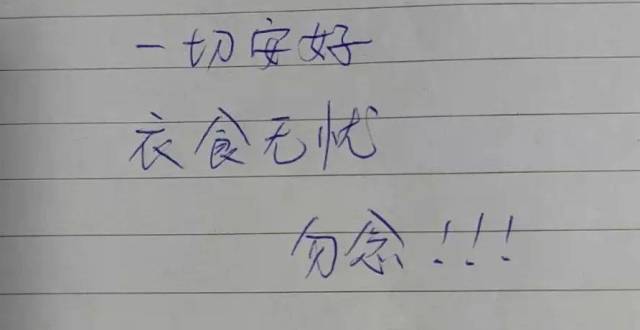 一切安好
衣食无忧
勿念!!!